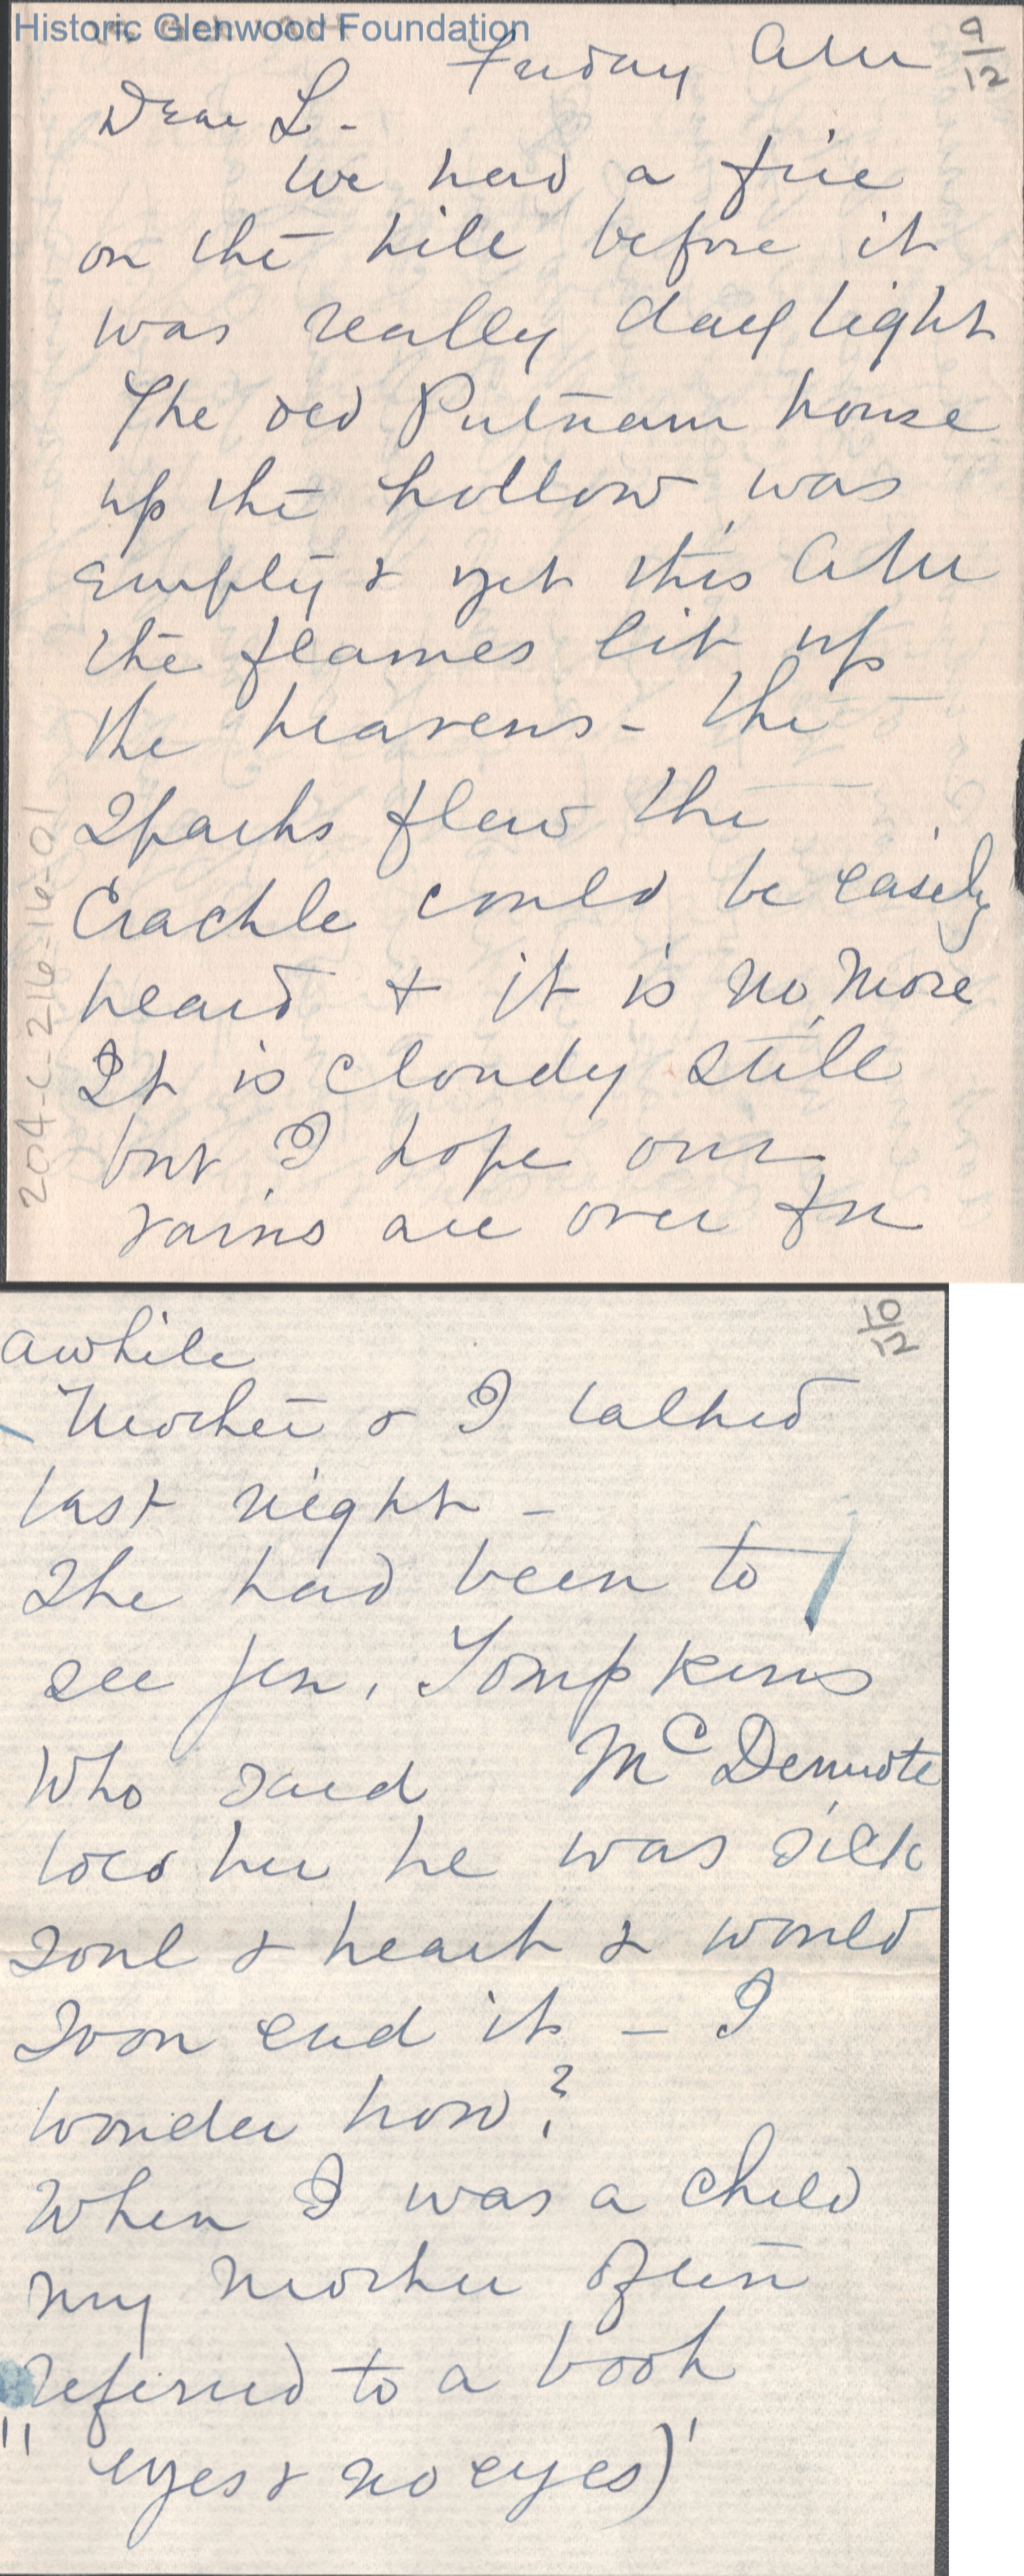 Historic Glenwood Foundation
9/12
Friday AM
Dear L-
We had a fire
on the hill before it
was really day light
The old Putnam house
up the hollow was
empty & yet this AM
the flames lit up
the heavens - the
Sparks flew the
Crackle could be easily
heard + it is no more
It is cloudy still
but I hope our
rains are over for
204-C-216-116-01
10/12
awhile
Mother & I talked
last night -
She had been to
see Jen. Tompkins
Who said McDermott
told her he was sick
Soul & heart & would
Soon end it - I
wonder how?
When I was a child
my mother often
referred to a book
"eyes & no eyes)'